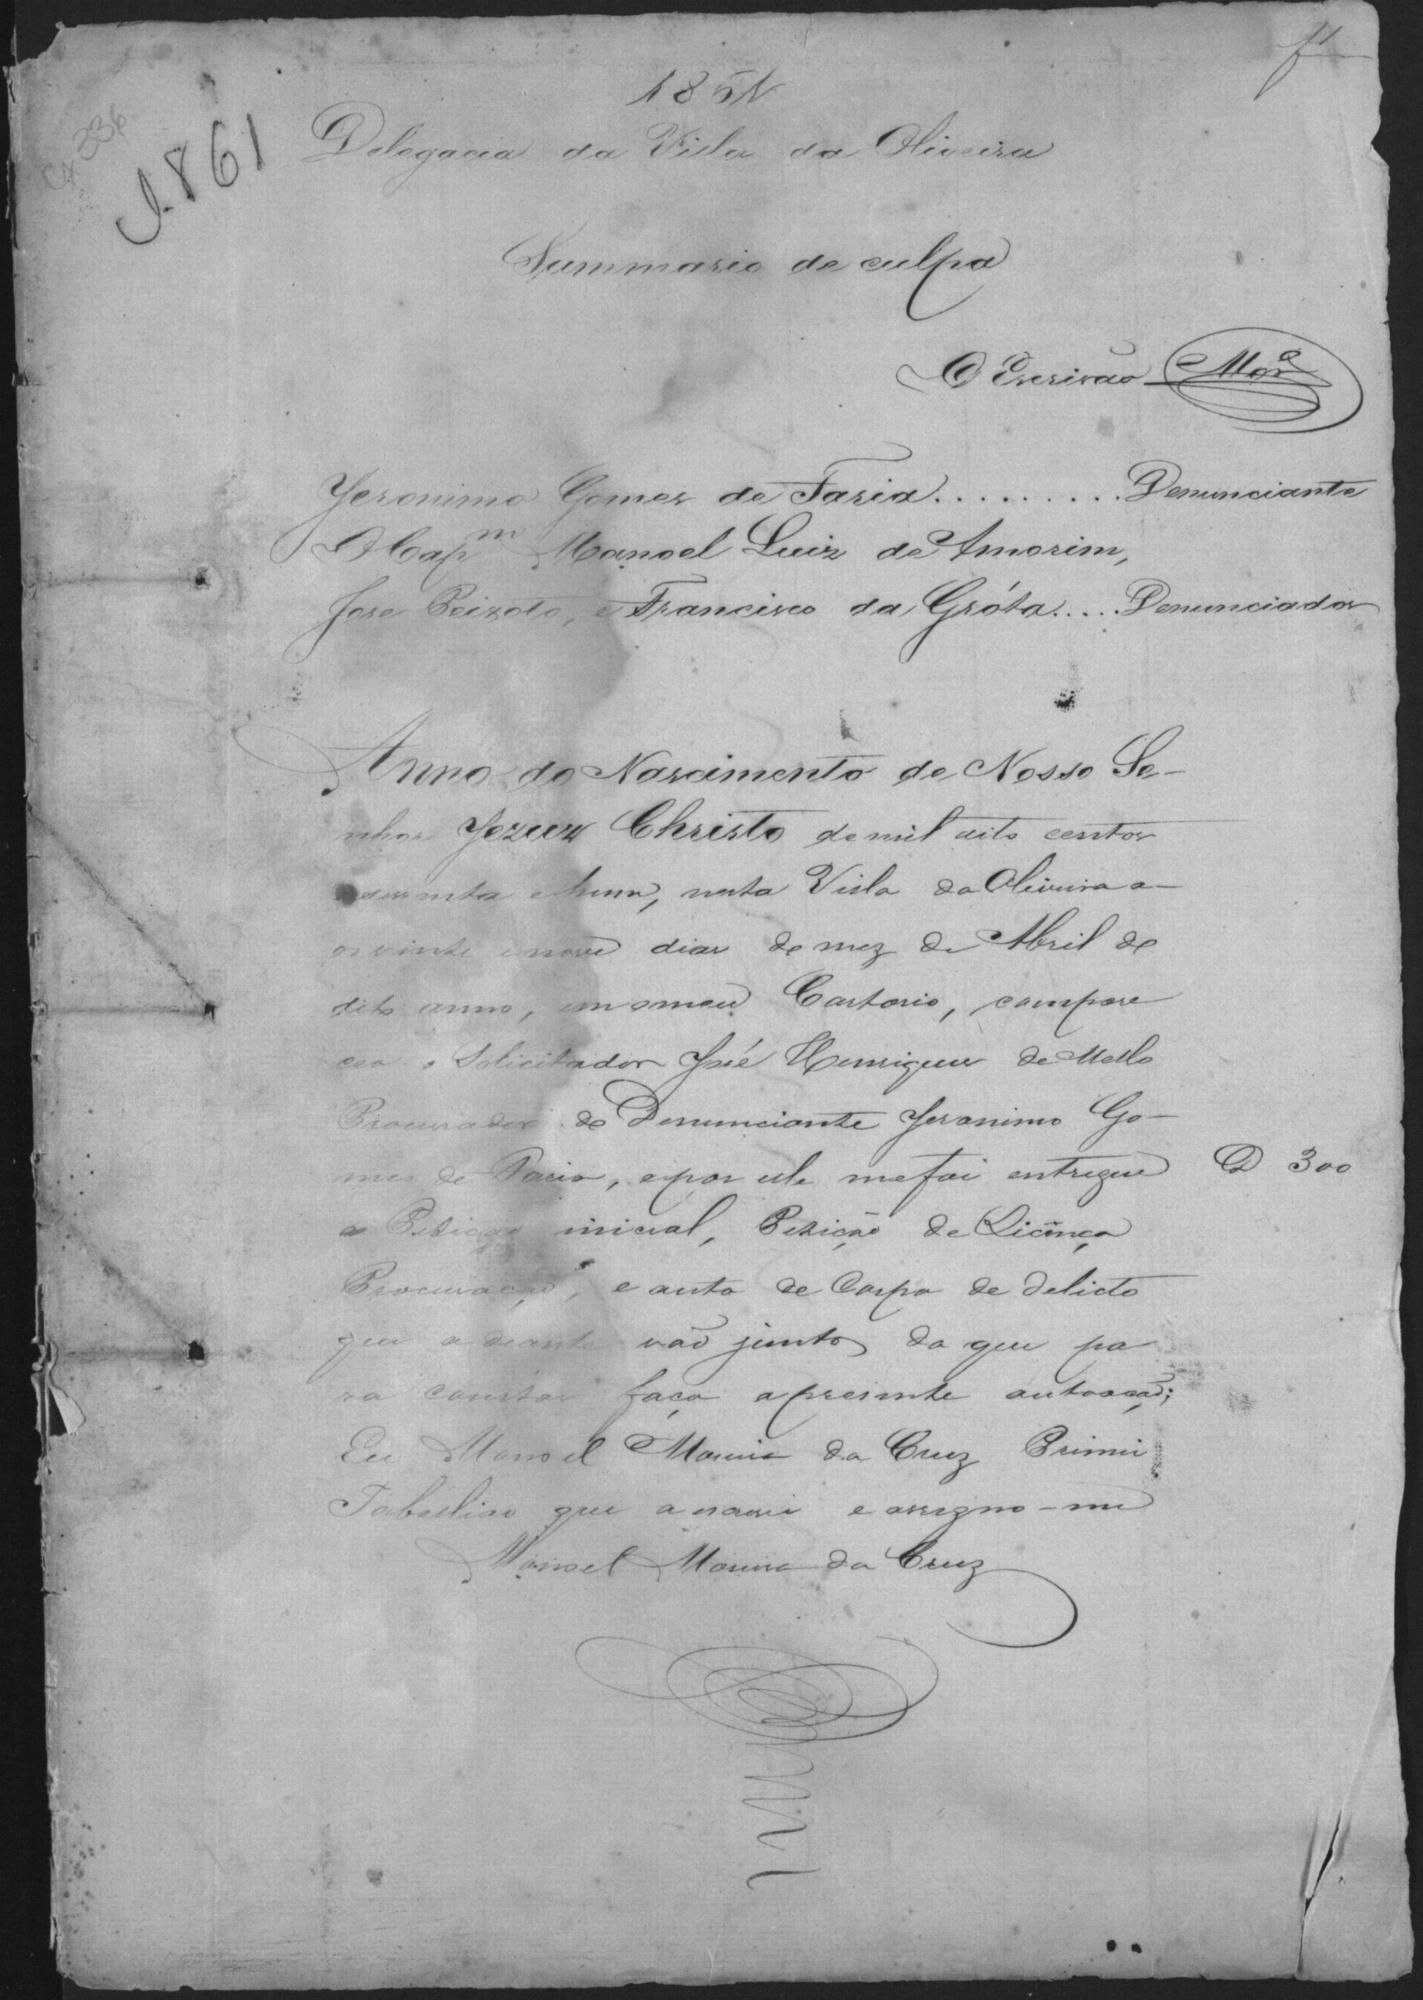 f 1
Cx 336
J. 861
1861
Delegacia da Villa da Oliveira
Summario de culpa
O Escrivão Mor.ª
Jeronimo Gomes de Faria......... Denunciante
O Cap.m Manoel Luiz de Amorim,
Jose Peixoto, e Francisco da Gróta.... Denunciados
Anno do Nascimento de Nosso Se-
nhor Jezus Christo de mil oito centos
e sesenta e hum, nesta Villa da Oliveira a-
os vinte e nove dias do mez de Abril do
dito anno, em o meu Cartorio, compare
ceo o Solicitador José Henriques de Mello
Procurador do Denunciante Jeronimo Go-
mes de Faria, e por ele me foi entregue
D 300
a Petição inicial, Petição de Licença
Procuração, e auto de Corpo de delicto
que a deante vão junto, do que pa
ra constar faço a presente autoação;
Eu Manoel Moreira da Cruz Primeiro
Tabellião que a escrevi e assigno-me
Manoel Moreira da Cruz